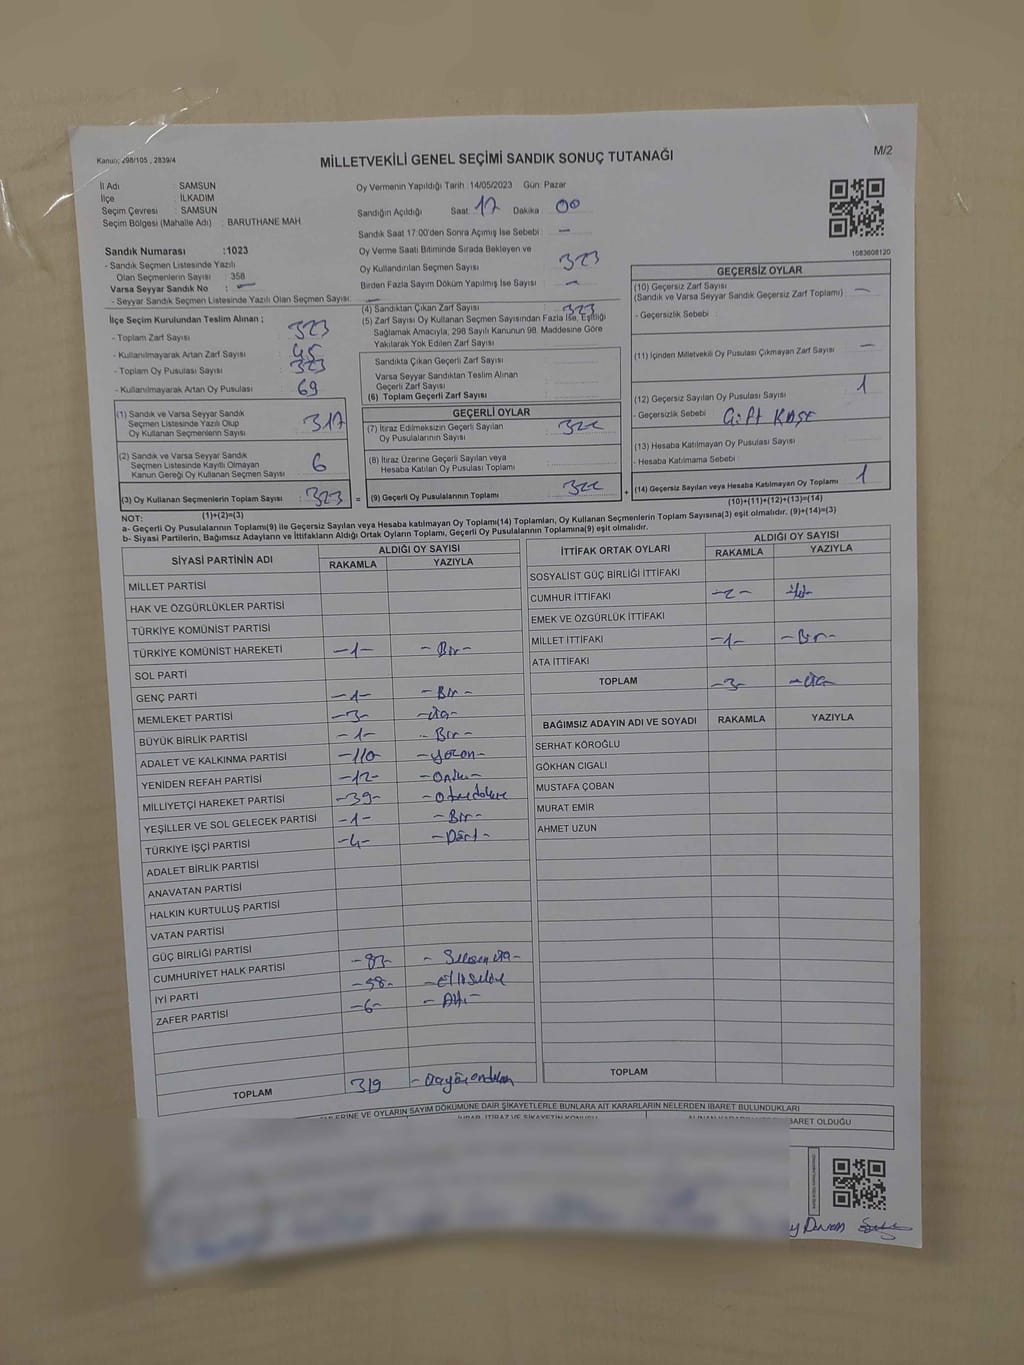 Kanun; 298/105 , 2839/4
MİLLETVEKİLİ GENEL SEÇİMİ SANDIK SONUÇ TUTANAĞI
M/2
İl Adı : SAMSUN
İlçe : İLKADIM
Seçim Çevresi : SAMSUN
Seçim Bölgesi (Mahalle Adı) : BARUTHANE MAH.
Sandık Numarası :1023
- Sandık Seçmen Listesinde Yazılı
Olan Seçmenlerin Sayısı : 358
Varsa Seyyar Sandık No : –
- Seyyar Sandık Seçmen Listesinde Yazılı Olan Seçmen Sayısı : –
Oy Vermenin Yapıldığı Tarih :14/05/2023 Gün: Pazar
Sandığın Açıldığı Saat 17 Dakika 00
Sandık Saat 17:00'den Sonra Açımış İse Sebebi : –
Oy Verme Saati Bitiminde Sırada Bekleyen ve
Oy Kullandırılan Seçmen Sayısı 323
Birden Fazla Sayım Döküm Yapılmış İse Sayısı –
1083608120
İlçe Seçim Kurulundan Teslim Alınan ;
- Toplam Zarf Sayısı : 323
- Kullanılmayarak Artan Zarf Sayısı : 45
- Toplam Oy Pusulası Sayısı : 323
- Kullanılmayarak Artan Oy Pusulası : 69
(1) Sandık ve Varsa Seyyar Sandık
Seçmen Listesinde Yazılı Olup
Oy Kullanan Seçmenlerin Sayısı : 317
(2) Sandık ve Varsa Seyyar Sandık
Seçmen Listesinde Kayıtlı Olmayan
Kanun Gereği Oy Kullanan Seçmen Sayısı : 6
(3) Oy Kullanan Seçmenlerin Toplam Sayısı : 323
(1)+(2)=(3)
(4) Sandıktan Çıkan Zarf Sayısı : 323
(5) Zarf Sayısı Oy Kullanan Seçmen Sayısından Fazla İse, Eşitliği
Sağlamak Amacıyla, 298 Sayılı Kanunun 98. Maddesine Göre
Yakılarak Yok Edilen Zarf Sayısı :
Sandıkta Çıkan Geçerli Zarf Sayısı :
Varsa Seyyar Sandıktan Teslim Alınan
Geçerli Zarf Sayısı :
(6) Toplam Geçerli Zarf Sayısı :
=
GEÇERLİ OYLAR
(7) İtiraz Edilmeksizin Geçerli Sayılan
Oy Pusulalarının Sayısı : 322
(8) İtiraz Üzerine Geçerli Sayılan veya
Hesaba Katılan Oy Pusulası Toplamı :
(9) Geçerli Oy Pusulalarının Toplamı : 322
+
GEÇERSİZ OYLAR
(10) Geçersiz Zarf Sayısı
(Sandık ve Varsa Seyyar Sandık Geçersiz Zarf Toplamı) : –
- Geçersizlik Sebebi :
(11) İçinden Milletvekili Oy Pusulası Çıkmayan Zarf Sayısı : –
(12) Geçersiz Sayılan Oy Pusulası Sayısı : 1
- Geçersizlik Sebebi : Çift KAŞE
(13) Hesaba Katılmayan Oy Pusulası Sayısı :
- Hesaba Katılmama Sebebi :
(14) Geçersiz Sayılan veya Hesaba Katılmayan Oy Toplamı : 1
(10)+(11)+(12)+(13)=(14)
NOT:
a- Geçerli Oy Pusulalarının Toplamı(9) ile Geçersiz Sayılan veya Hesaba katılmayan Oy Toplamı(14) Toplamları, Oy Kullanan Seçmenlerin Toplam Sayısına(3) eşit olmalıdır. (9)+(14)=(3)
b- Siyasi Partilerin, Bağımsız Adayların ve İttifakların Aldığı Ortak Oyların Toplamı, Geçerli Oy Pusulalarının Toplamına(9) eşit olmalıdır.
SİYASİ PARTİNİN ADI
ALDIĞI OY SAYISI
RAKAMLA YAZIYLA
MİLLET PARTİSİ
HAK VE ÖZGÜRLÜKLER PARTİSİ
TÜRKİYE KOMÜNİST PARTİSİ
TÜRKİYE KOMÜNİST HAREKETİ –1– – Bir –
SOL PARTİ
GENÇ PARTİ –1– – Bir –
MEMLEKET PARTİSİ –3– – Üç –
BÜYÜK BİRLİK PARTİSİ –1– – Bir –
ADALET VE KALKINMA PARTİSİ –110– – yüzon –
YENİDEN REFAH PARTİSİ –12– – Oniki –
MİLLİYETÇİ HAREKET PARTİSİ –39– – Otuzdokuz
YEŞİLLER VE SOL GELECEK PARTİSİ –1– – Bir –
TÜRKİYE İŞÇİ PARTİSİ –4– – Dört –
ADALET BİRLİK PARTİSİ
ANAVATAN PARTİSİ
HALKIN KURTULUŞ PARTİSİ
VATAN PARTİSİ
GÜÇ BİRLİĞİ PARTİSİ
CUMHURİYET HALK PARTİSİ –83– – Seksenüç –
İYİ PARTİ –58– – Ellisekiz
ZAFER PARTİSİ –6– – Altı –
TOPLAM 319 – Üçyüzondokuz
İTTİFAK ORTAK OYLARI
ALDIĞI OY SAYISI
RAKAMLA YAZIYLA
SOSYALİST GÜÇ BİRLİĞİ İTTİFAKI
CUMHUR İTTİFAKI –2– –İki–
EMEK VE ÖZGÜRLÜK İTTİFAKI
MİLLET İTTİFAKI –1– – Bir –
ATA İTTİFAKI
TOPLAM –3– – Üç
BAĞIMSIZ ADAYIN ADI VE SOYADI RAKAMLA YAZIYLA
SERHAT KÖROĞLU
GÖKHAN CIGALI
MUSTAFA ÇOBAN
MURAT EMİR
AHMET UZUN
TOPLAM
EMLERİNE VE OYLARIN SAYIM DÖKÜMÜNE DAİR ŞİKAYETLERLE BUNLARA AİT KARARLARIN NELERDEN İBARET BULUNDUKLARI
BARET OLDUĞU